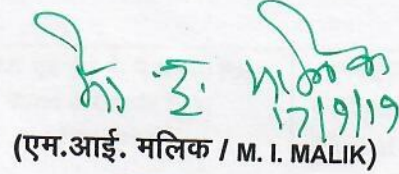 मो. इ. मलिक
17/9/19
(एम.आई. मलिक / M. I. MALIK)